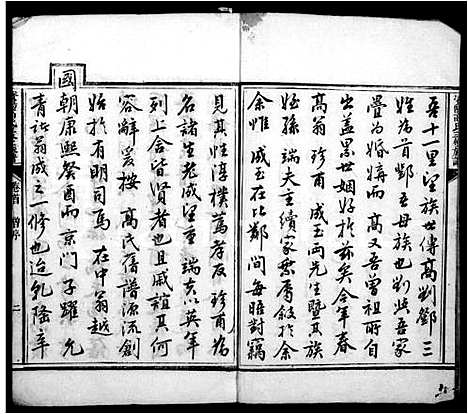 吾十一里望族世傳高劉鄧三
姓為首鄧吾母族也劉與吾家
疊為婚媾而高又吾曾祖所自
出蓋累世姻好於茲矣今年春
高翁珍甫成玉两先生暨其族
姪孫端夫主續家乘屬敘於余
余惟成玉在比鄰間每晤對竊
見其性淳樸篤孝友珍甫為
名諸生老成望重端夫以英年
列上舍皆賢者也且戚誼其何
容辭爰按高氏舊譜源流創
始於有明司馬在中翁越
國朝康熙癸酉而京門子躍允
青諸翁成之一修也迨乾隆辛
卷首
二